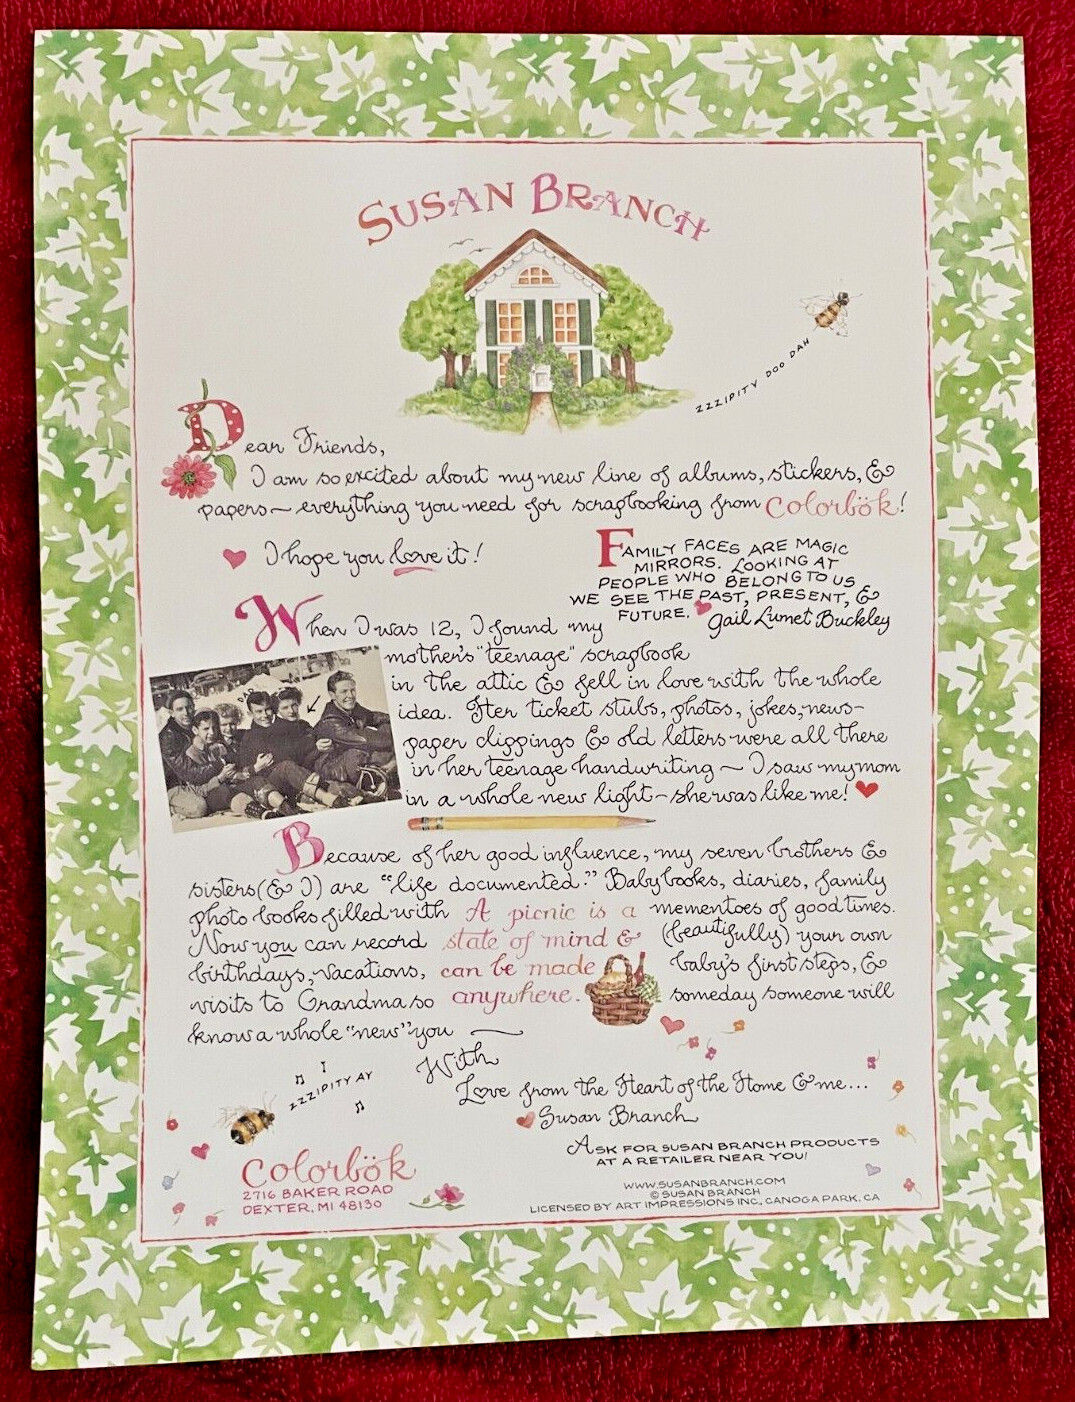 SUSAN BRANCH
ZZZIPITY DOO DAH
Dear Friends,
I am so excited about my new line of albums, stickers, &
papers~everything you need for scrapbooking from Colorbök!
I hope you love it!
FAMILY FACES ARE MAGIC
MIRRORS. LOOKING AT
PEOPLE WHO BELONG TO US
WE SEE THE PAST, PRESENT, &
FUTURE. Gail Lumet Buckley
When I was 12, I found my
mother's "teenage" scrapbook
in the attic & fell in love with the whole
idea. Her ticket stubs, photos, jokes, news-
paper clippings & old letters were all there
in her teenage handwriting ~ I saw my mom
in a whole new light~she was like me!
DAD
Because of her good influence, my seven brothers &
sisters (& I) are "life documented." Baby books, diaries, family
photo books filled with mementoes of good times.
Now you can record (beautifully) your own
birthdays, vacations, baby's first steps, &
visits to Grandma so someday someone will
know a whole "new" you —
A picnic is a
state of mind &
can be made
anywhere.
With
Love from the Heart of the Home & me...
Susan Branch
ZZZIPITY AY
ASK FOR SUSAN BRANCH PRODUCTS
AT A RETAILER NEAR YOU!
Colorbök
2716 BAKER ROAD
DEXTER, MI 48130
WWW.SUSANBRANCH.COM
© SUSAN BRANCH
LICENSED BY ART IMPRESSIONS INC., CANOGA PARK, CA